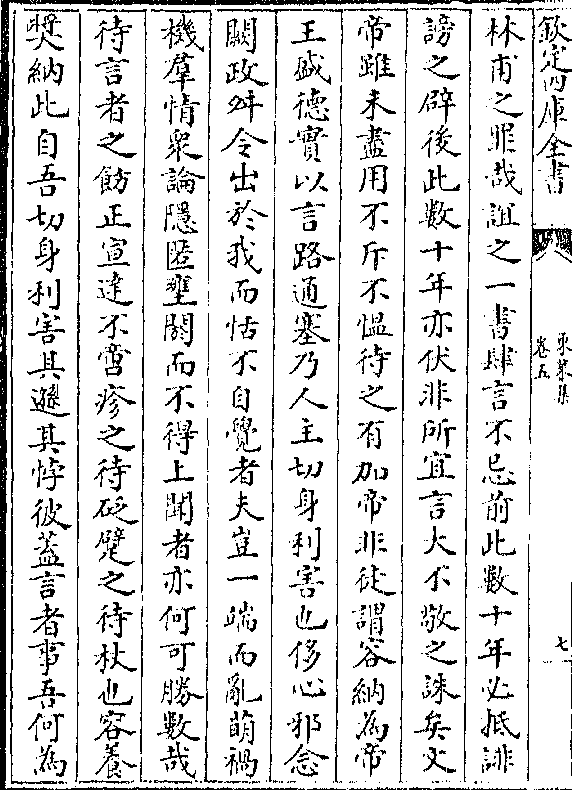 欽定四庫全書
東萊集
卷五
七
林甫之罪哉誼之一書肆言不忌前此數十年必抵誹
謗之辟後此數十年亦伏非所宜言大不敬之誅矣文
帝雖未盡用不斥不愠待之有加帝非徒謂容納為帝
王盛德實以言路通塞乃人主切身利害也侈心邪念
闕政舛令出於我而恬不自覺者夫豈一端而亂萌禍
機羣情衆論隱匿壅閼而不得上聞者亦何可勝數哉
待言者之飭正宣達不啻疹之待砭躄之待杖也容養
奬納此自吾切身利害其遜其悖彼蓋言者事吾何為